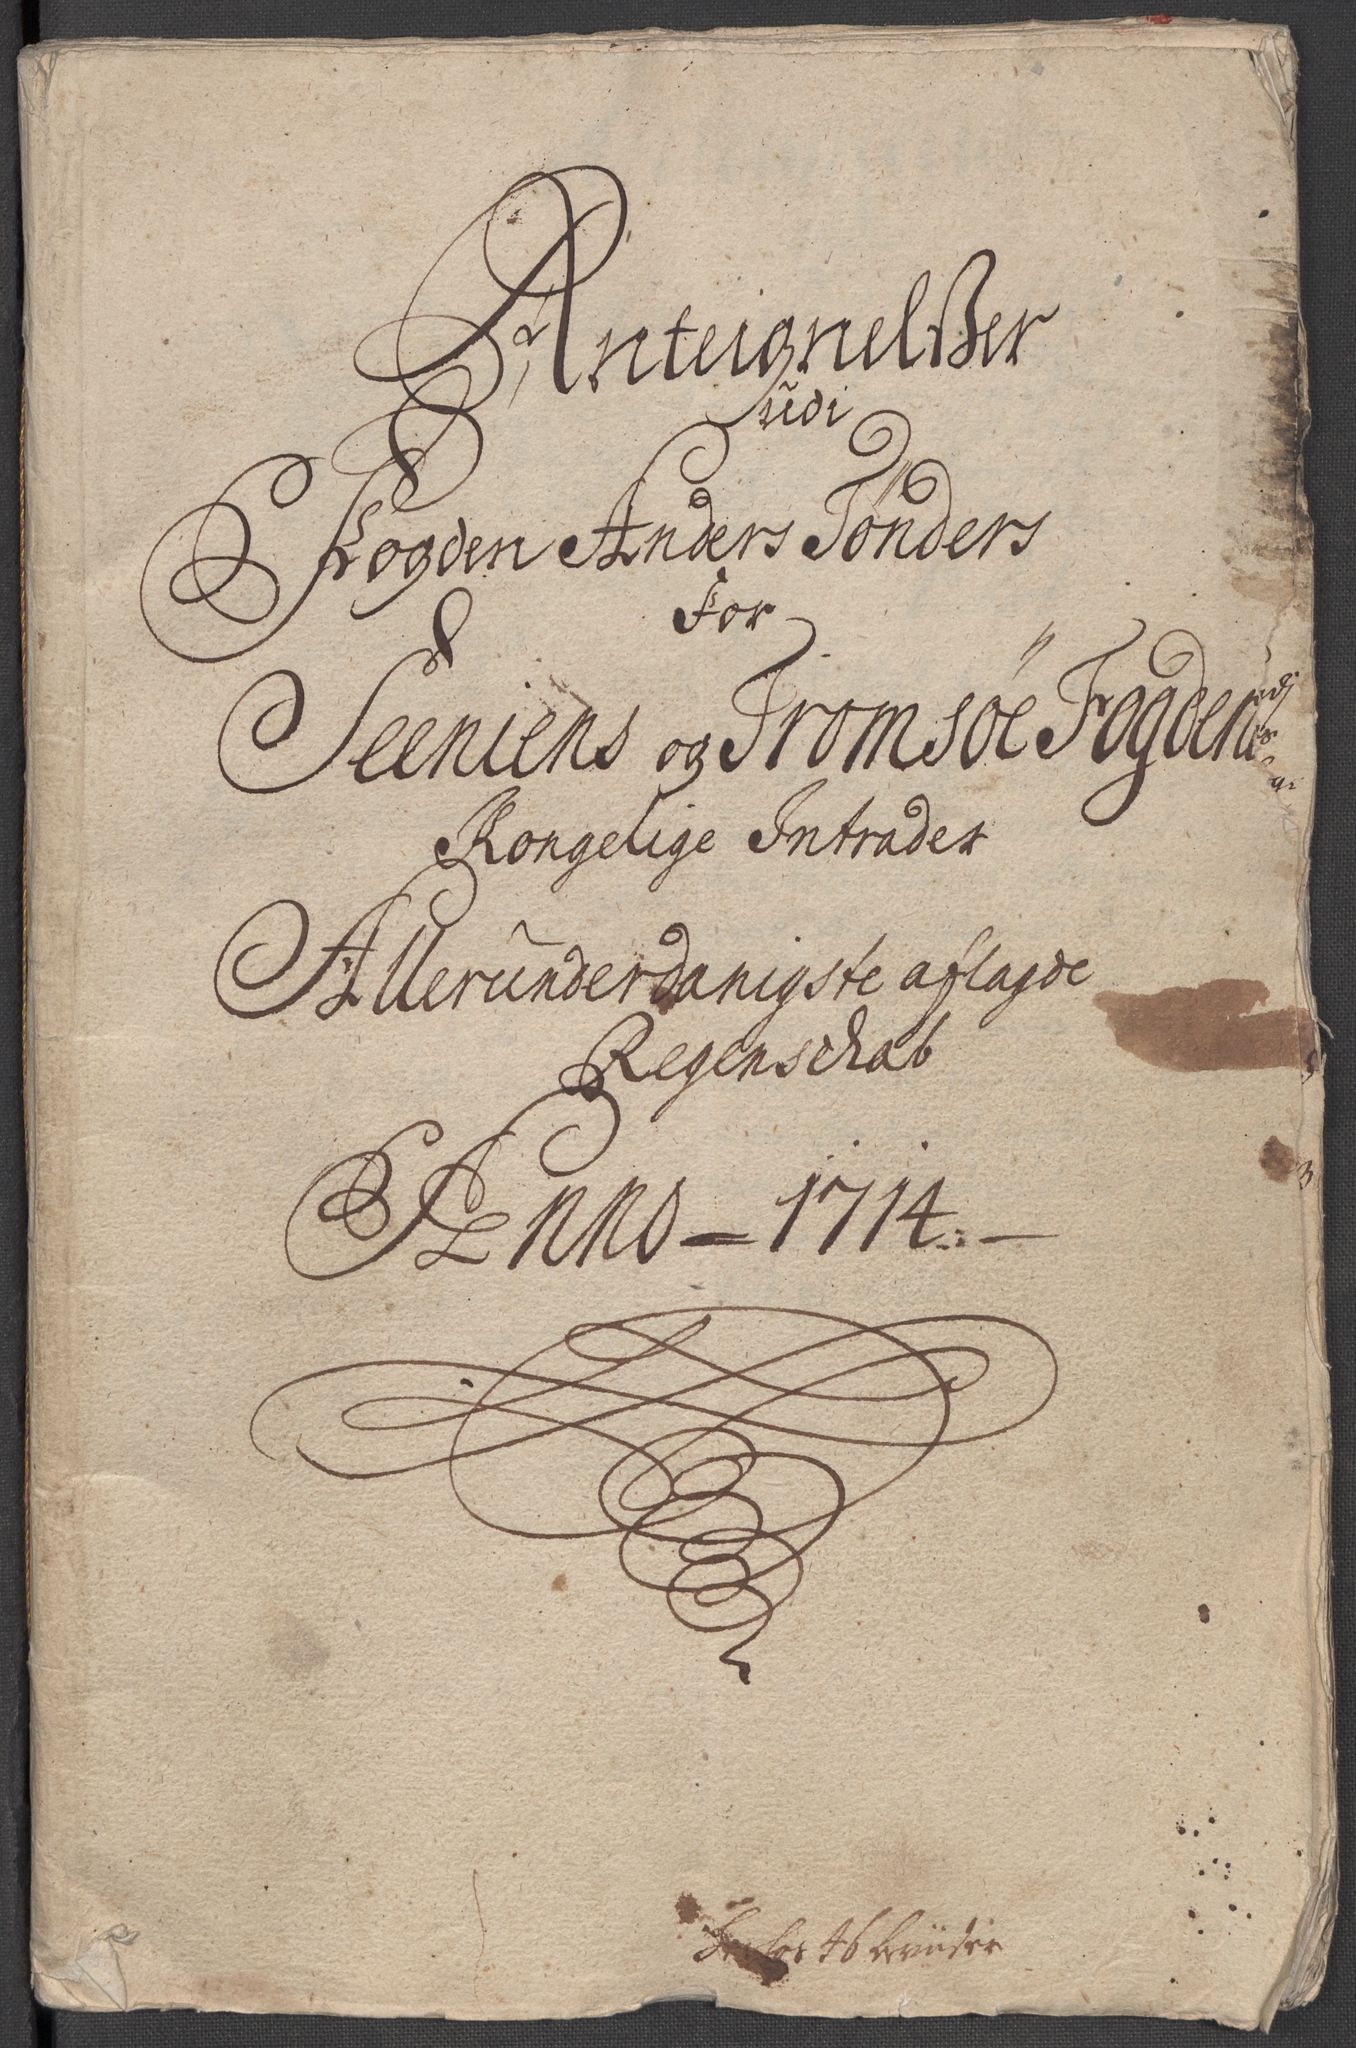 Anteignelßer
udi
Fogden Anders Tönders
For
Seeniens og Tromsöe Fogderi
Kongelige Intrader
Alleründerdanigste aflagde
Regenschab
Anno - 1714. -